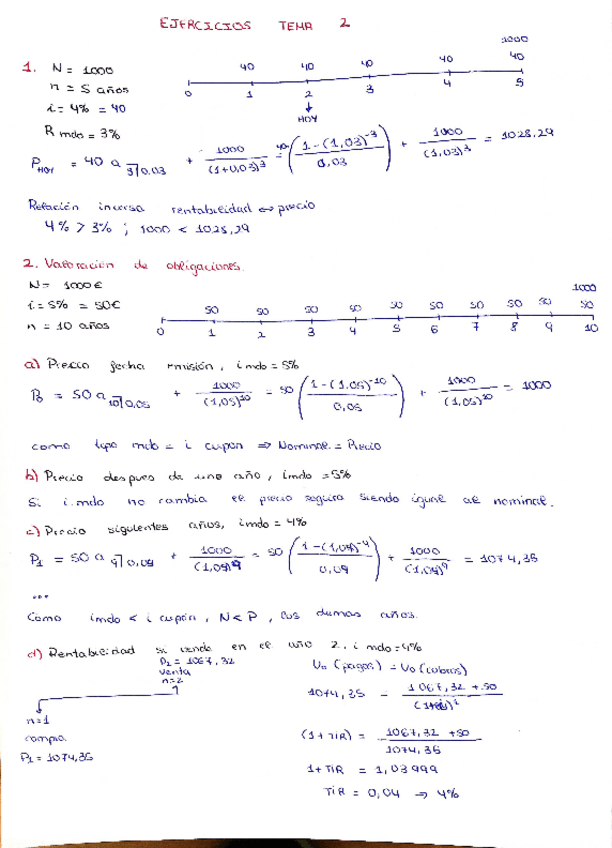 EJERCICIOS TEMA 2
1. N = 1000
n = 5 años
i = 4% = 40
R mdo = 3%
1000
40 40 40 40 40
0 1 2 3 4 5
HOY
P HOY = 40 a 3|0,03 + 1000/(1+0,03)^3 = 40 (1-(1,03)^-3 / 0,03) + 1000/(1,03)^3 = 1028,29
Relación inversa rentabilidad ⇔ precio
4% > 3% ; 1000 < 1028,29
2. Valoración de obligaciones.
N = 1000 €
i = 5% = 50€
n = 10 años
1000
50 50 50 50 50 50 50 50 50 50
0 1 2 3 4 5 6 7 8 9 10
a) Precio fecha emisión, i mdo = 5%
P0 = 50 a 10|0,05 + 1000/(1,05)^10 = 50 (1-(1,05)^-10 / 0,05) + 1000/(1,05)^10 = 1000
como tipo mdo = i cupón ⇒ Nominal = Precio
b) Precio despues de uno año, imdo = 5%
Si i.mdo no cambia el precio seguira siendo igual al nominal.
c) Precio siguientes años, imdo = 4%
P1 = 50 a 9|0,04 + 1000/(1,04)^9 = 50 (1-(1,04)^-9 / 0,04) + 1000/(1,04)^9 = 1074,35
...
Como imdo < i cupón, N < P, los demas años.
d) Rentabilidad si vende en el año 2. i mdo = 4%
P2 = 1067,32
venta
n=2
n=1
compra
P1 = 1074,35
Vo (pagos) = Vo (cobros)
1074,35 = 1067,32 + 50
(1 + TIR) = 1067,32 + 50 / 1074,35
1 + TIR = 1,03999
TIR = 0,04 → 4%